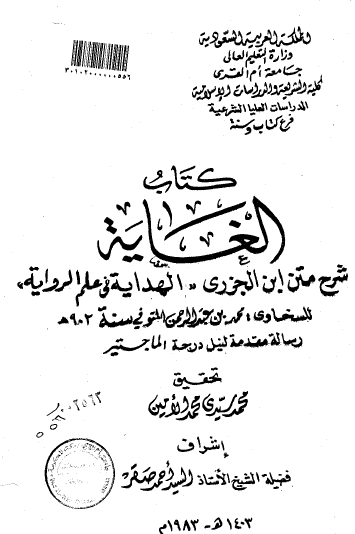 المملكة العربية السعودية
وزارة التعليم العالي
جامعة أم القرى
كلية الشريعة والدراسات الإسلامية
الدراسات العليا الشرعية
فرع كتاب وسنة
٣٠١٠٢٠٠٠٠٠٠٥٥٦
كتاب
الغاية
شرح متن ابن الجزري « الهداية في علم الرواية »
للسخاوى : محمد بن عبد الرحمن المتوفى سنة ٩٠٢ هـ
رسالة مقدمة لنيل درجة الماجستير
تحقيق
محمد سيدي محمد الأمين
إشراف
فضيلة الشيخ الأستاذ السيد أحمد صقر
١٤٠٣هـ - ١٩٨٣م